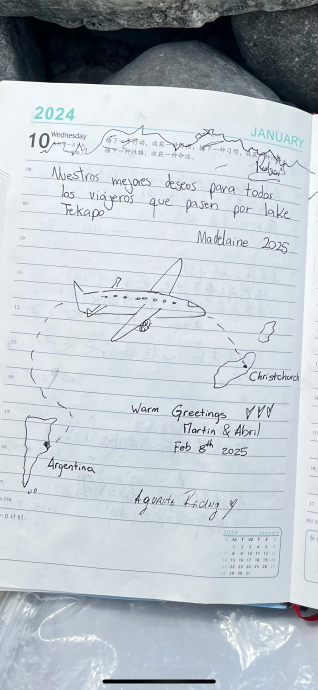 2024
JANUARY
10 Wednesday
Nuestros mejores deseos para todos
los viajeros que pasen por lake
Tekapo
Madelaine 2025
Christchurch
Warm Greetings
Martin & Abril
Feb 8th 2025
Argentina
2024 January
S M T W T F S
1 2 3 4 5 6
7 8 9 10 11 12 13
14 15 16 17 18 19 20
21 22 23 24 25 26 27
28 29 30 31